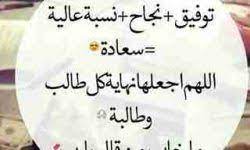 توفيق+نجاح+نسبة عالية
=سعادة😍
اللهم اجعلها نهاية كل طالب
وطالبة